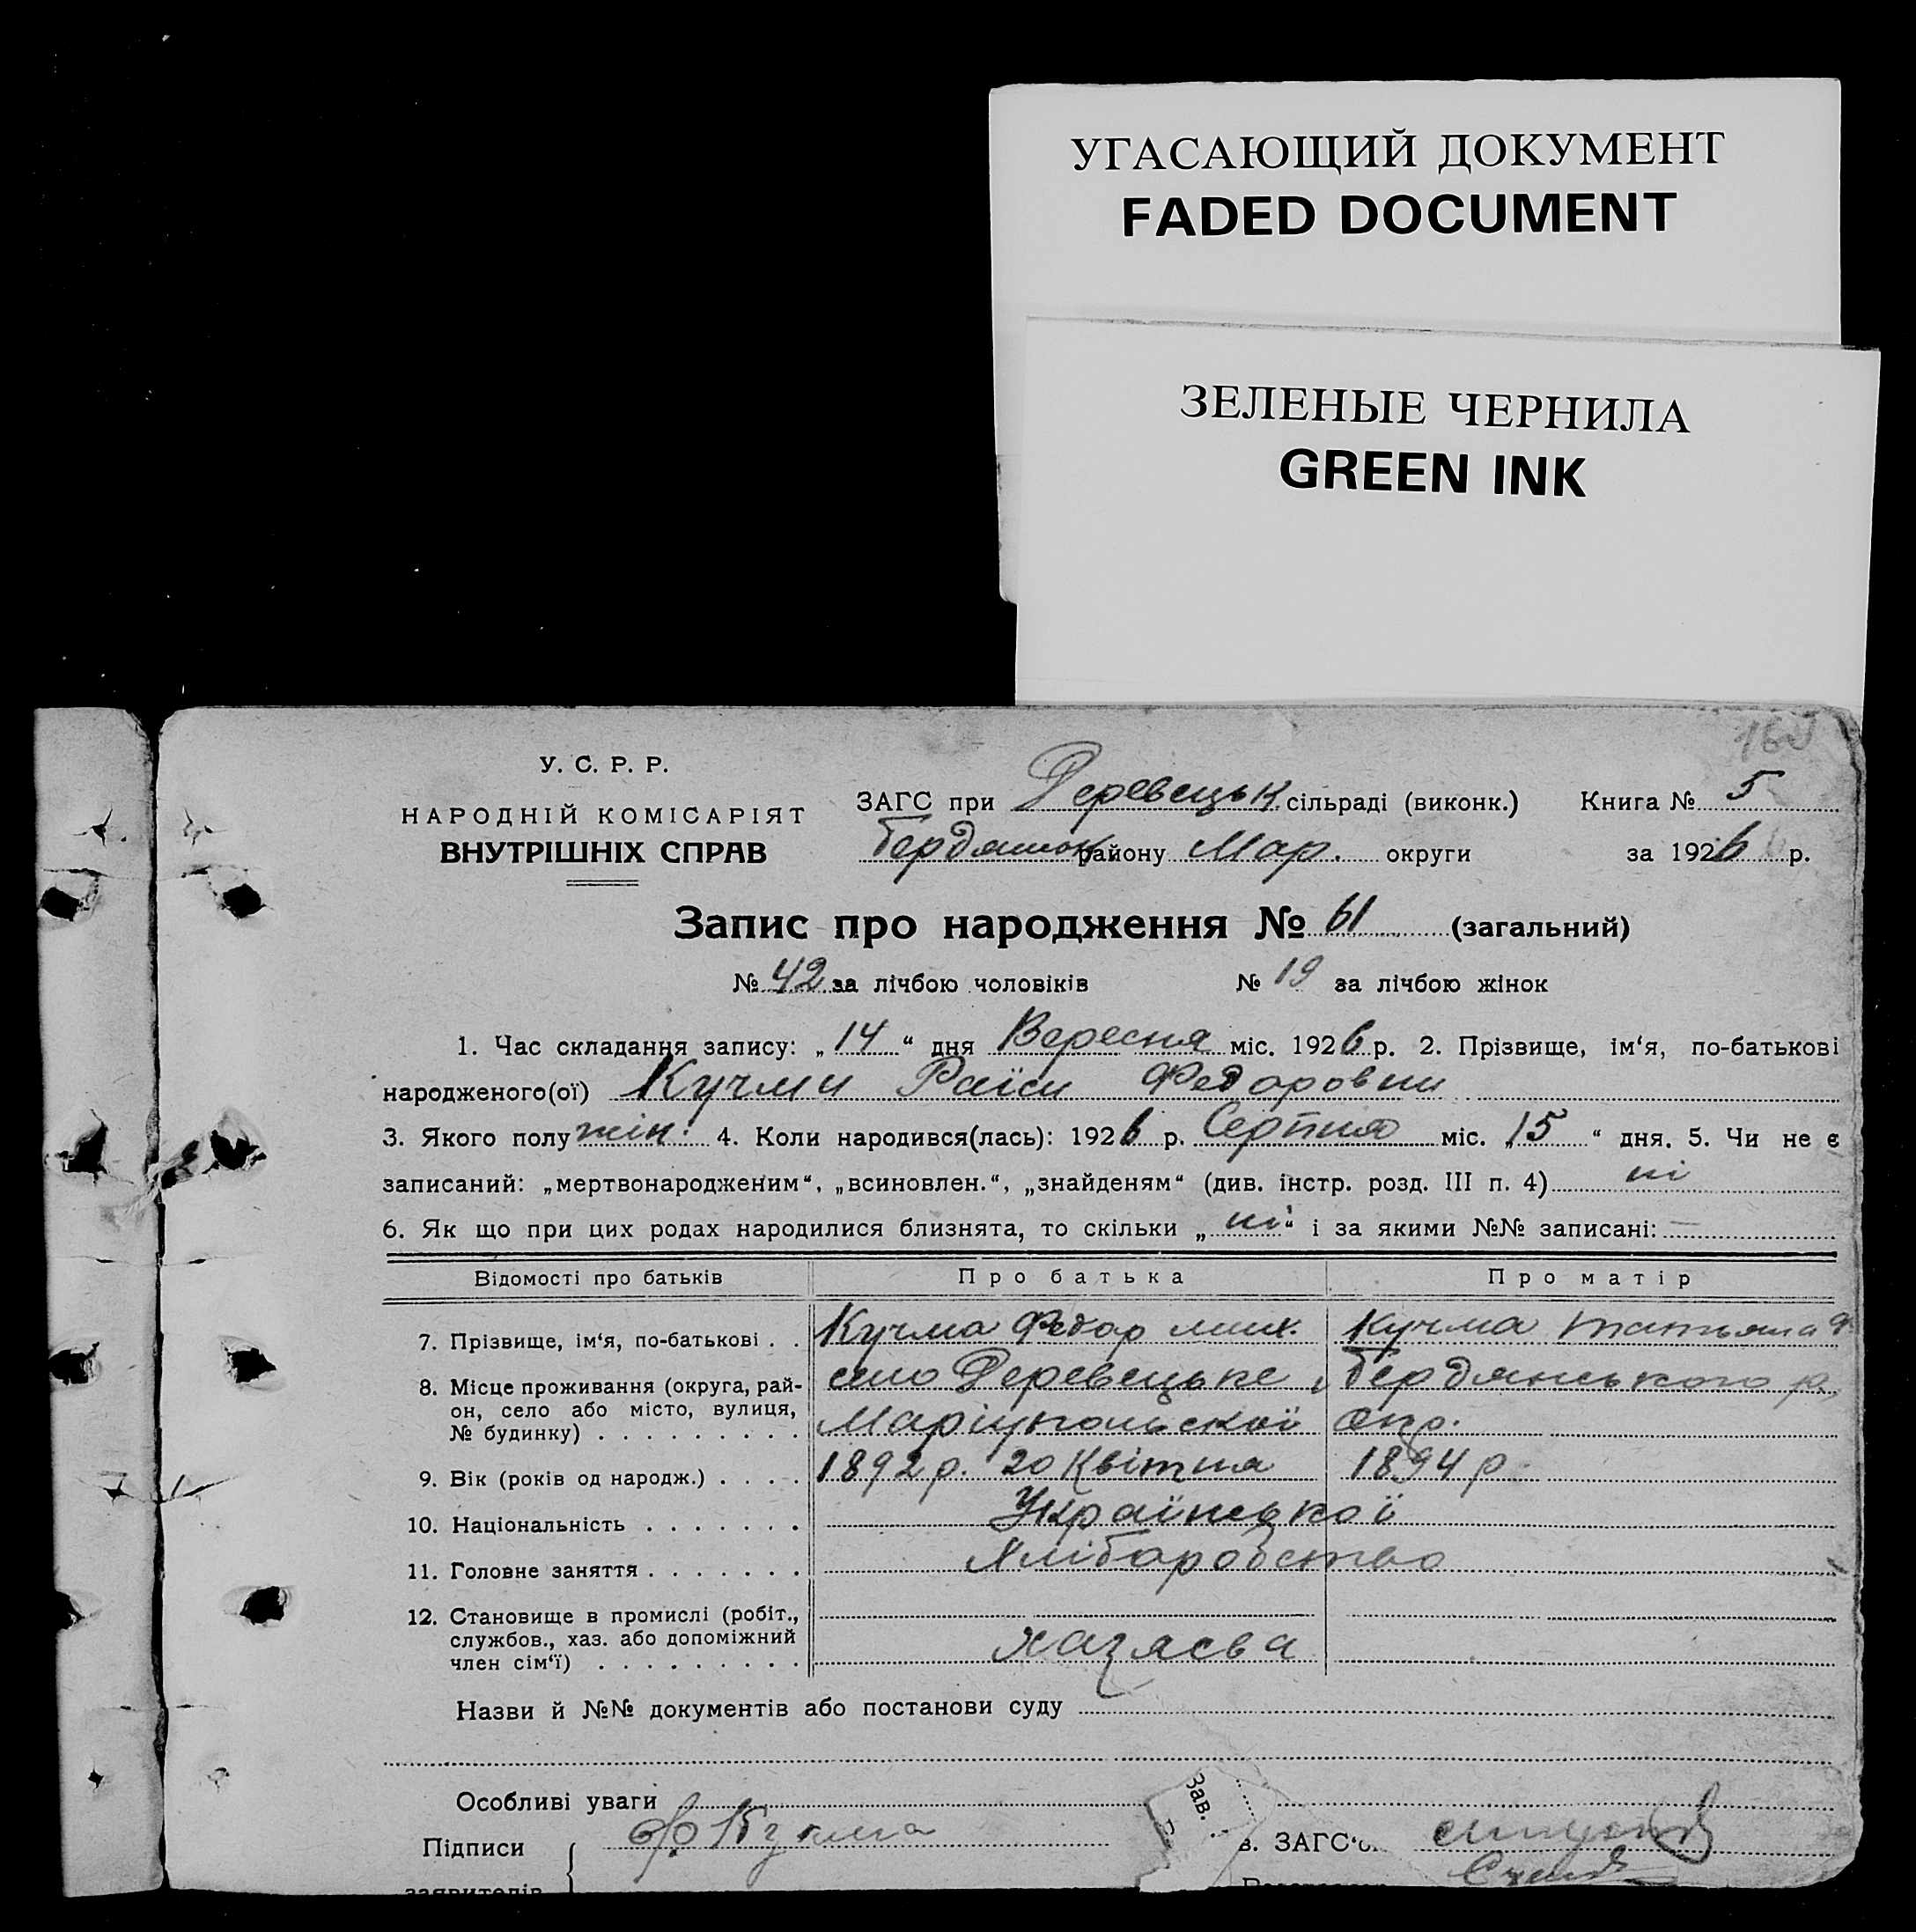 УГАСАЮЩИЙ ДОКУМЕНТ
FADED DOCUMENT
ЗЕЛЕНЫЕ ЧЕРНИЛА
GREEN INK
У. С. Р. Р.
НАРОДНІЙ КОМІСАРІЯТ
ВНУТРІШНІХ СПРАВ
ЗАГС при Деревецьк сільраді (виконк.) Книга № 5
Бердянськ району Мар. округи за 1926 р.
Запис про народження № 61 (загальний)
№ 42 за лічбою чоловіків № 19 за лічбою жінок
1. Час складання запису: „14“ дня Вересня міс. 1926 р. 2. Прізвище, ім‘я, по-батькові
народженого(ої) Кучми Раїси Федоровни
3. Якого полу жін. 4. Коли народився(лась): 1926 р. Серпня міс. „15“ дня. 5. Чи не є
записаний: „мертвонародженим“, „всиновлен.“, „знайденям“ (див. інстр. розд. III п. 4) ні
6. Як що при цих родах народилися близнята, то скільки „ні“ і за якими №№ записані: —
Відомості про батьків Про батька Про матір
7. Прізвище, ім‘я, по-батькові . . Кучма Федор мих. Кучма Татьяна Ф.
8. Місце проживання (округа, рай- село Деревецьке, Бердянського р.
он, село або місто, вулиця,
№ будинку) . . . . . . . . . Маріупольскої Окр.
9. Вік (років од народж.) . . . . 1892 р. 20 Квітня 1894 р.
10. Національність . . . . . . . Української
11. Головне заняття . . . . . . . Хліборобство
12. Становище в промислі (робіт.,
службов., хаз. або допоміжний
член сім‘ї) . . . . . . . . . хазяєва
Назви й №№ документів або постанови суду
Особливі уваги
Зав.
Підписи Ф Кучма в. ЗАГС‘о
заявителів